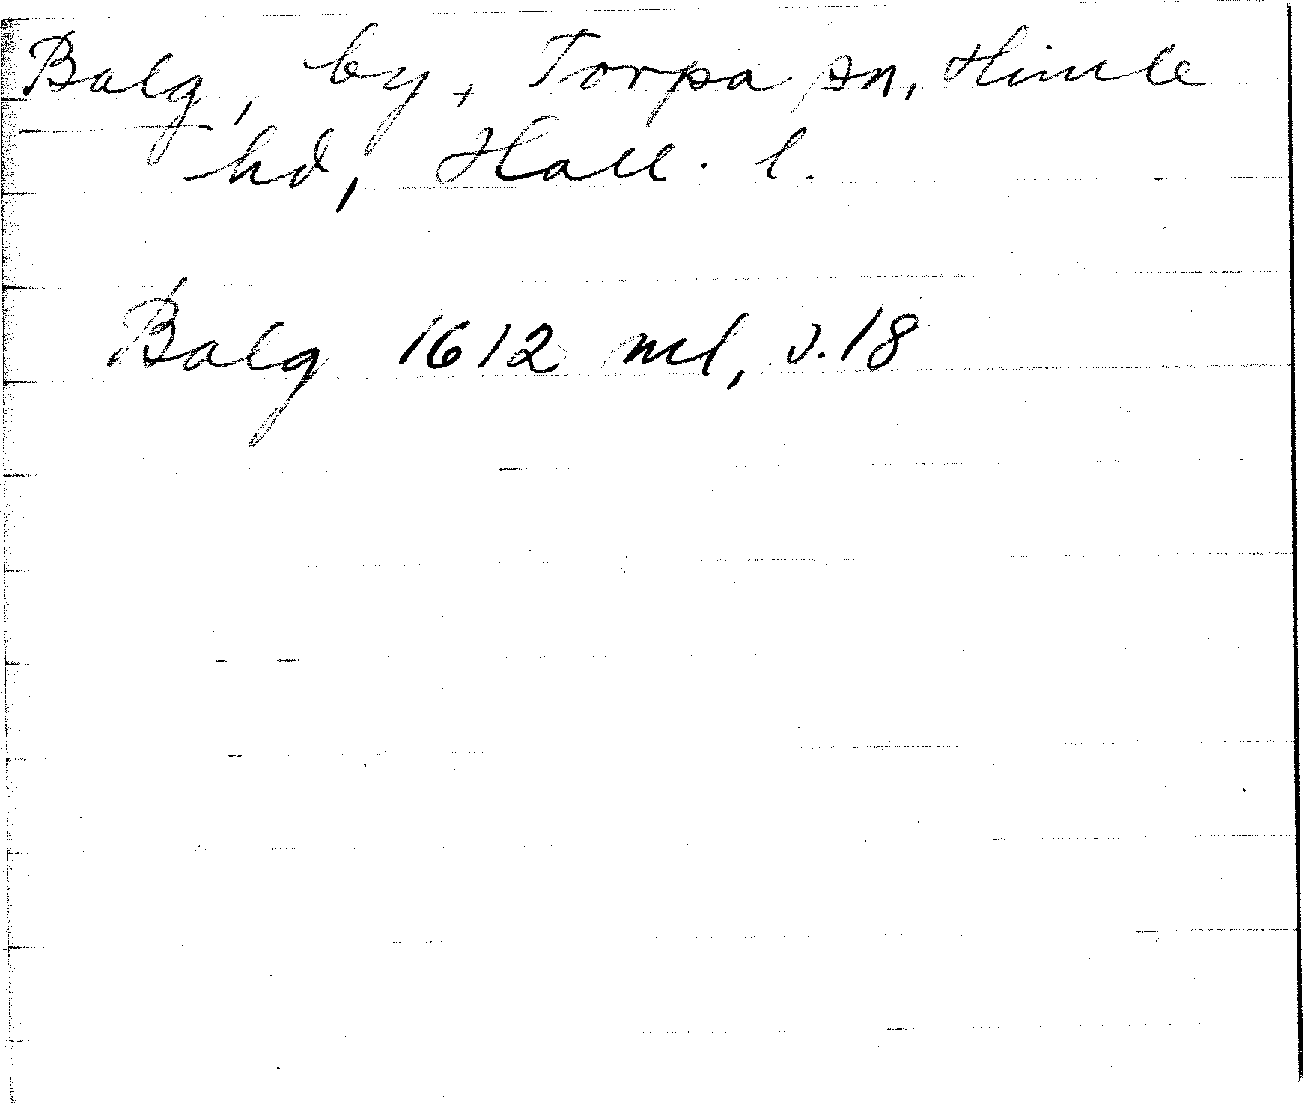 Balg, by, Torpa sn, Himle
hd, Hall. l.
Balg 1612 ml, s.18